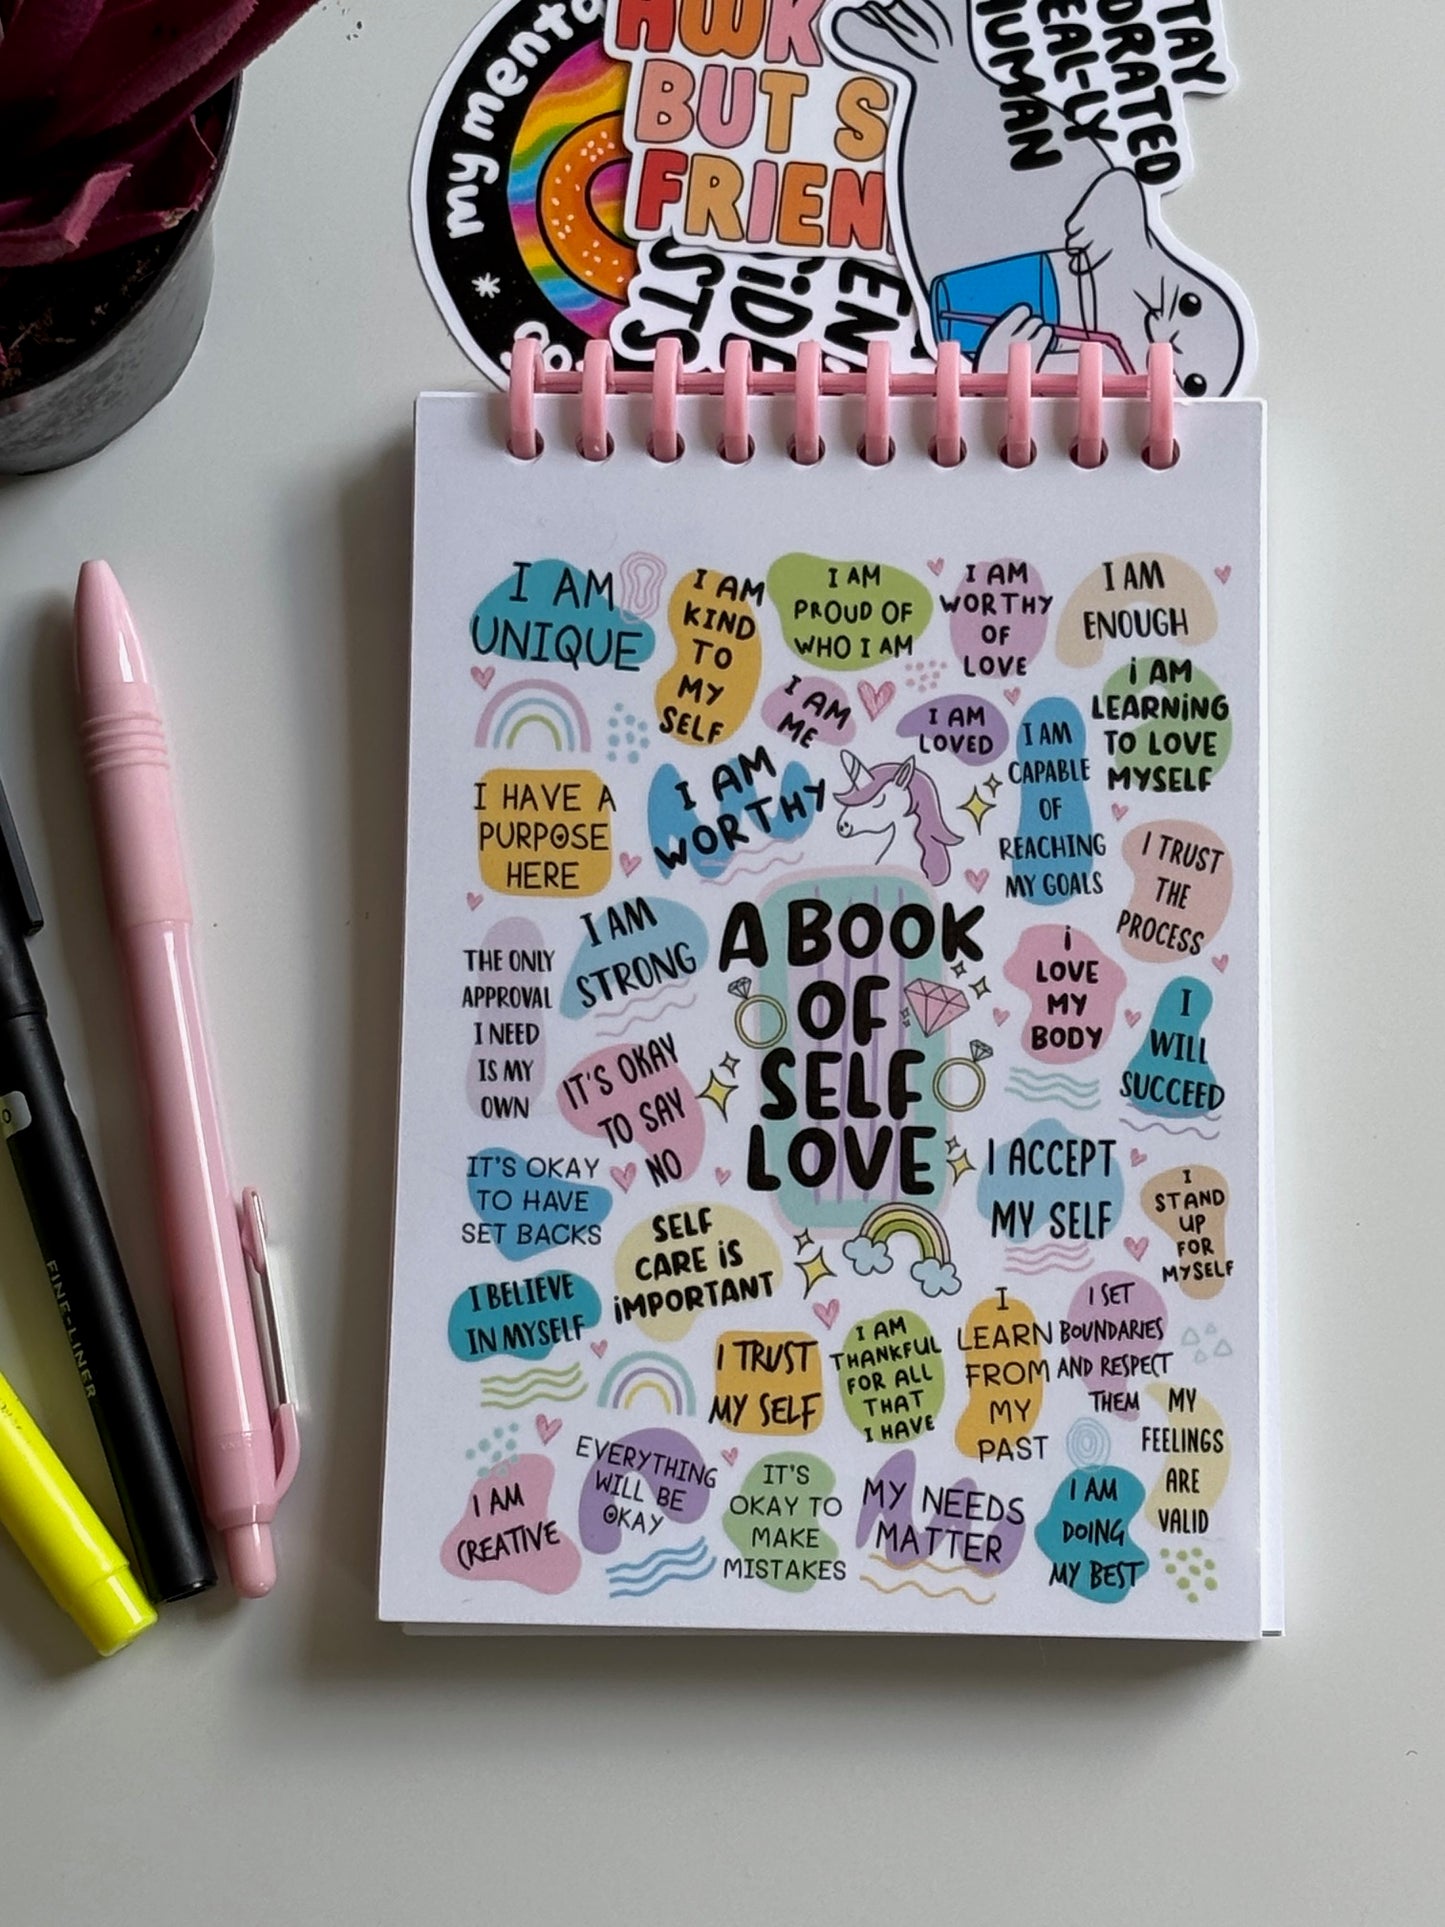 my menta
AWK
BUT S
FRIEN
STAY
DRATED
EAL-LY
HUMAN
I AM
UNIQUE
I AM
KIND
TO
MY
SELF
I AM
PROUD OF
WHO I AM
I AM
WORTHY
OF
LOVE
I AM
ENOUGH
I AM
ME
I AM
LOVED
I AM
CAPABLE
OF
REACHING
MY GOALS
i AM
LEARNiNG
TO LOVE
MYSELF
I HAVE A
PURPOSE
HERE
I AM
WORTHY
I TRUST
THE
PROCESS
THE ONLY
APPROVAL
I NEED
IS MY
OWN
I AM
STRONG
A BOOK
OF
SELF
LOVE
i
LOVE
MY
BODY
I
WILL
SUCCEED
IT'S OKAY
TO SAY
NO
IT'S OKAY
TO HAVE
SET BACKS
SELF
CARE iS
iMPORTANT
I ACCEPT
MY SELF
I
STAND
UP
FOR
MYSELF
I BELIEVE
IN MYSELF
I TRUST
MY SELF
I AM
THANKFUL
FOR ALL
THAT
I HAVE
I
LEARN
FROM
MY
PAST
I SET
BOUNDARIES
AND RESPECT
THEM
MY
FEELINGS
ARE
VALID
I AM
CREATIVE
EVERYTHING
WILL BE
OKAY
IT'S
OKAY TO
MAKE
MISTAKES
MY NEEDS
MATTER
I AM
DOING
MY BEST
FINE-LINER